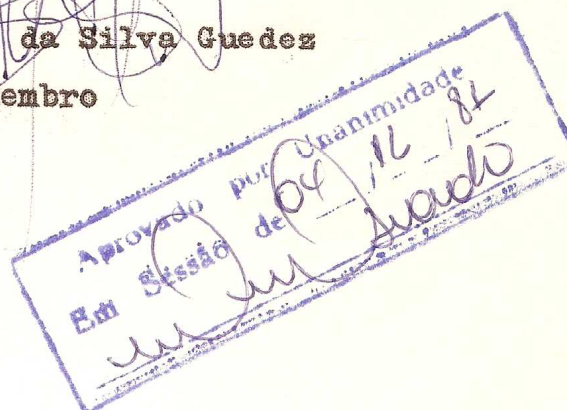 da Silva Guedez
embro
Aprovado por Unanimidade
Em Sessão de 04 / 12 / 81